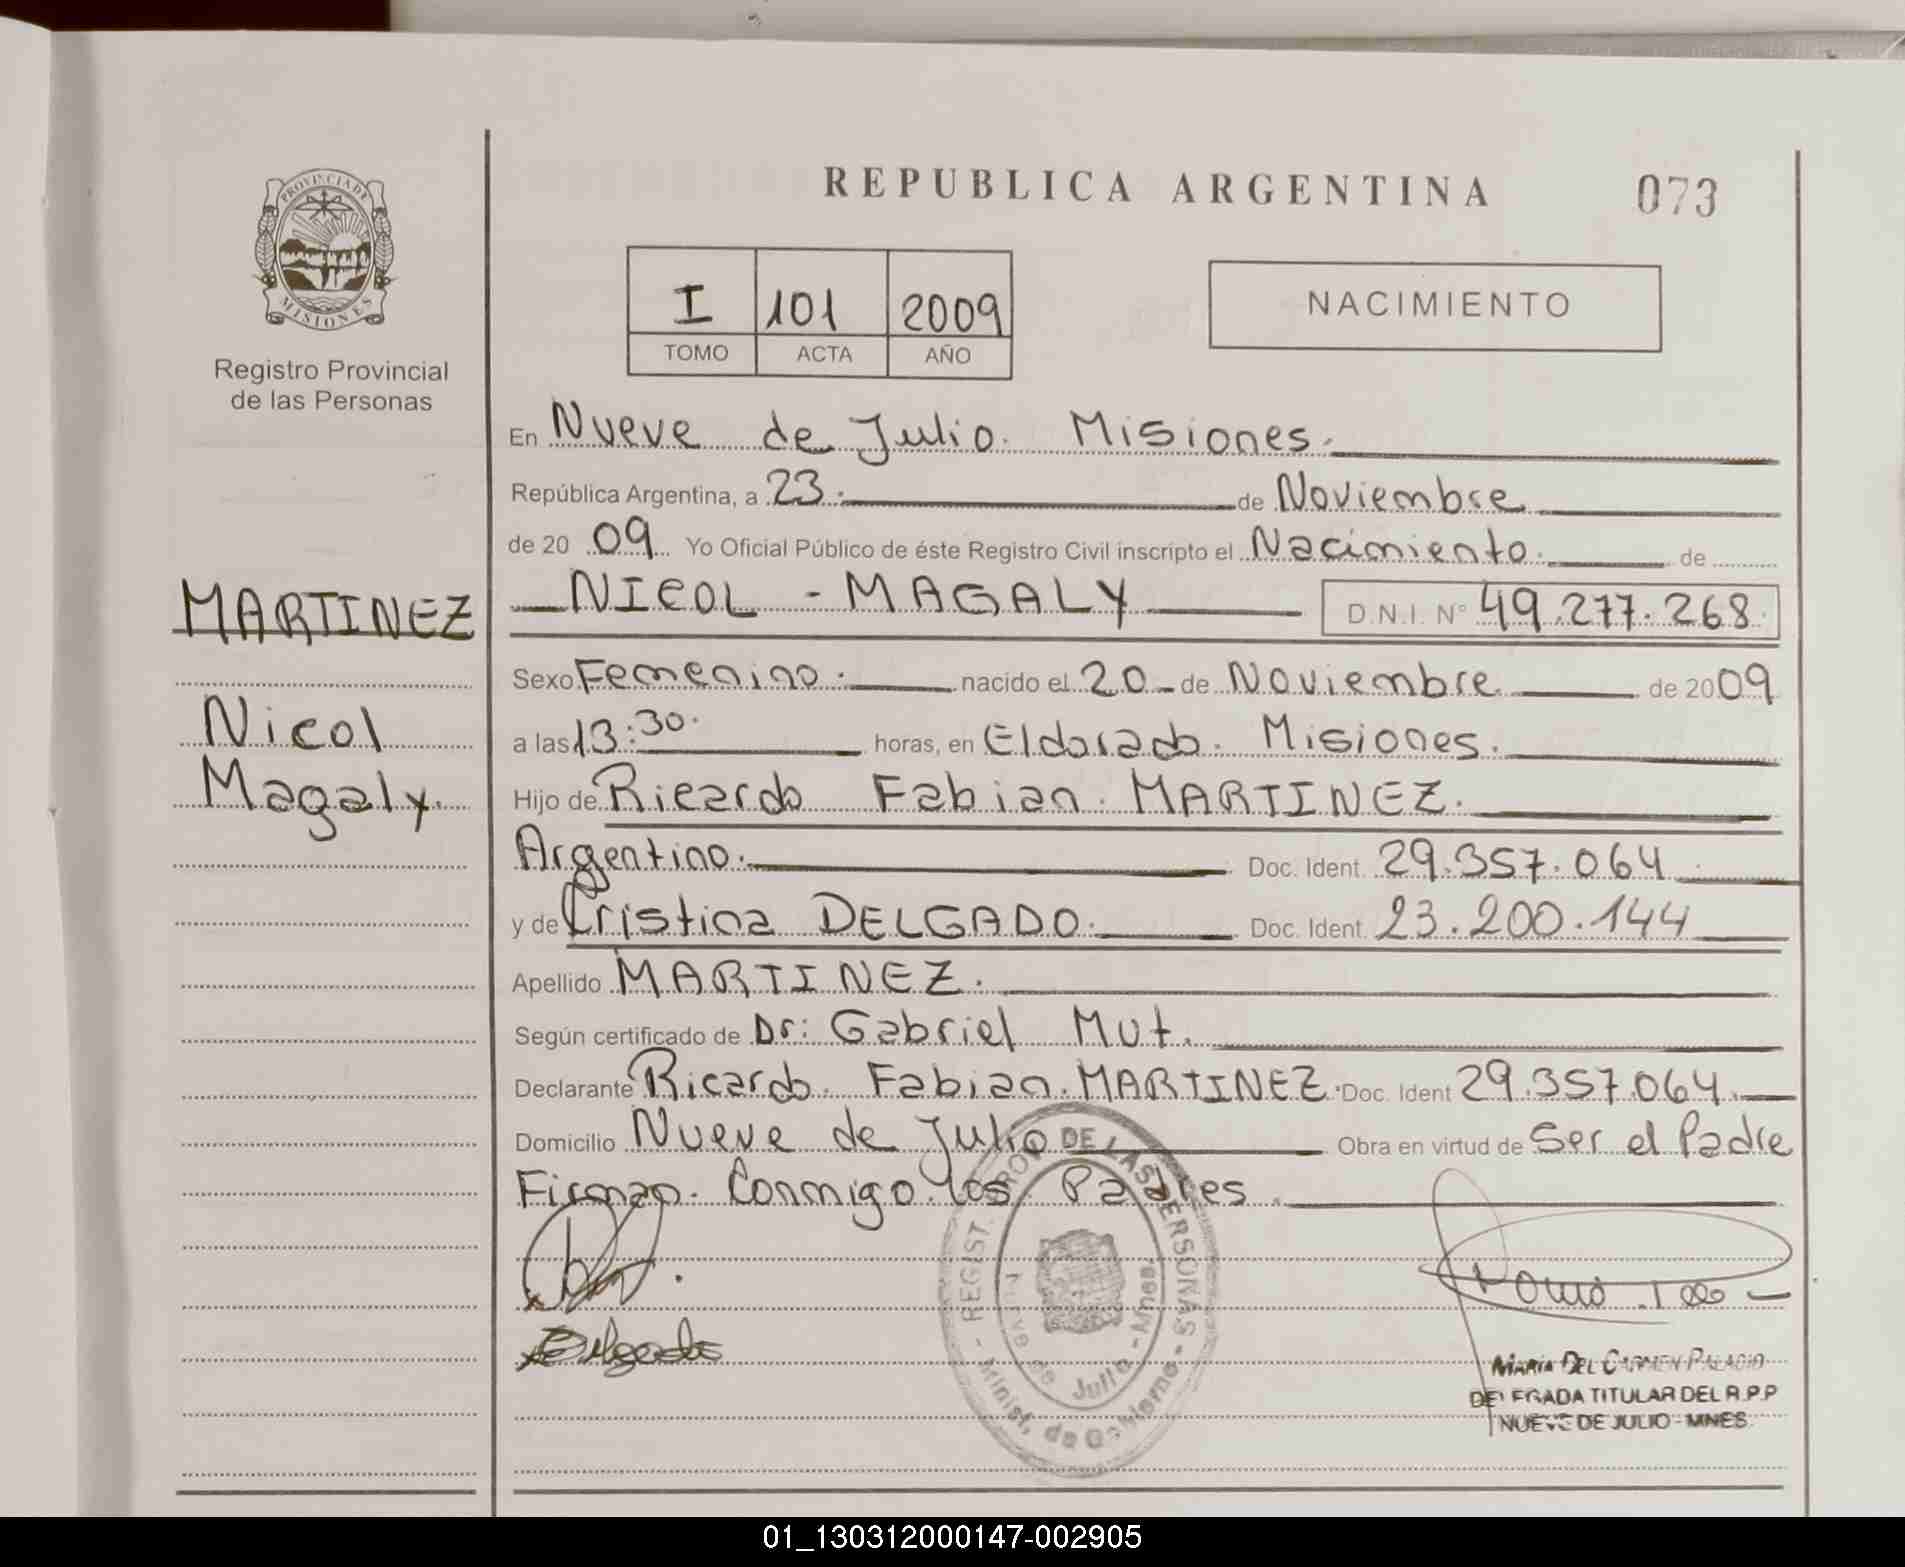 PROVINCIA DE
MISIONES
Registro Provincial
de las Personas
MARTINEZ
Nicol
Magaly.
REPUBLICA ARGENTINA
073
I 101 2009
TOMO ACTA AÑO
NACIMIENTO
En Nueve de Julio. Misiones.
República Argentina, a 23. de Noviembre
de 20 09 Yo Oficial Público de éste Registro Civil inscripto el Nacimiento. de
NICOL - MAGALY D.N.I. N° 49.277.268.
Sexo Femenino. nacido el 20 de Noviembre de 2009
a las 13:30. horas, en Eldorado. Misiones.
Hijo de Ricardo Fabian. MARTINEZ.
Argentino. Doc. Ident. 29.357.064
y de Cristina DELGADO. Doc. Ident. 23.200.144
Apellido MARTINEZ.
Según certificado de Dr: Gabriel Mut.
Declarante Ricardo. Fabian. MARTINEZ. Doc. Ident 29.357.064.
Domicilio Nueve de Julio Obra en virtud de Ser el Padre
Firman. Conmigo los Padres.
Delgado
REGIST. PROV. DE LAS PERSONAS
Nueve de Julio - Mnes.
- Minist. de Gobierno -
MARIA DEL CARMEN PALACIO
DELEGADA TITULAR DEL R.P.P
NUEVE DE JULIO - MNES.
01_130312000147-002905